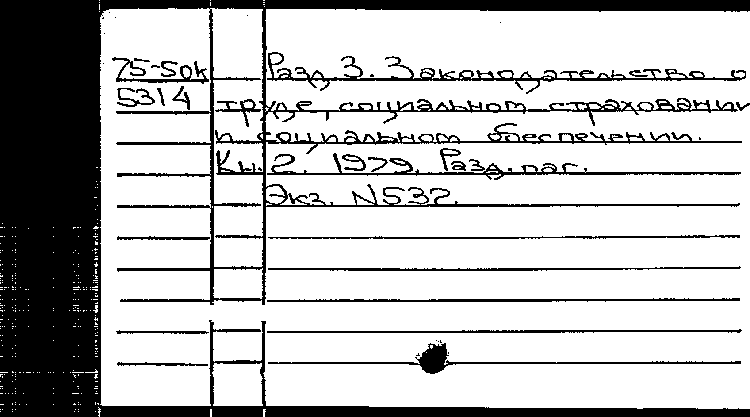 75-50к Разд 3. Законодательство о
5314 труде, социальном страховании
и социальном обеспечении.
Кн. 2. 1979. Разд. паг.
Экз. N537.